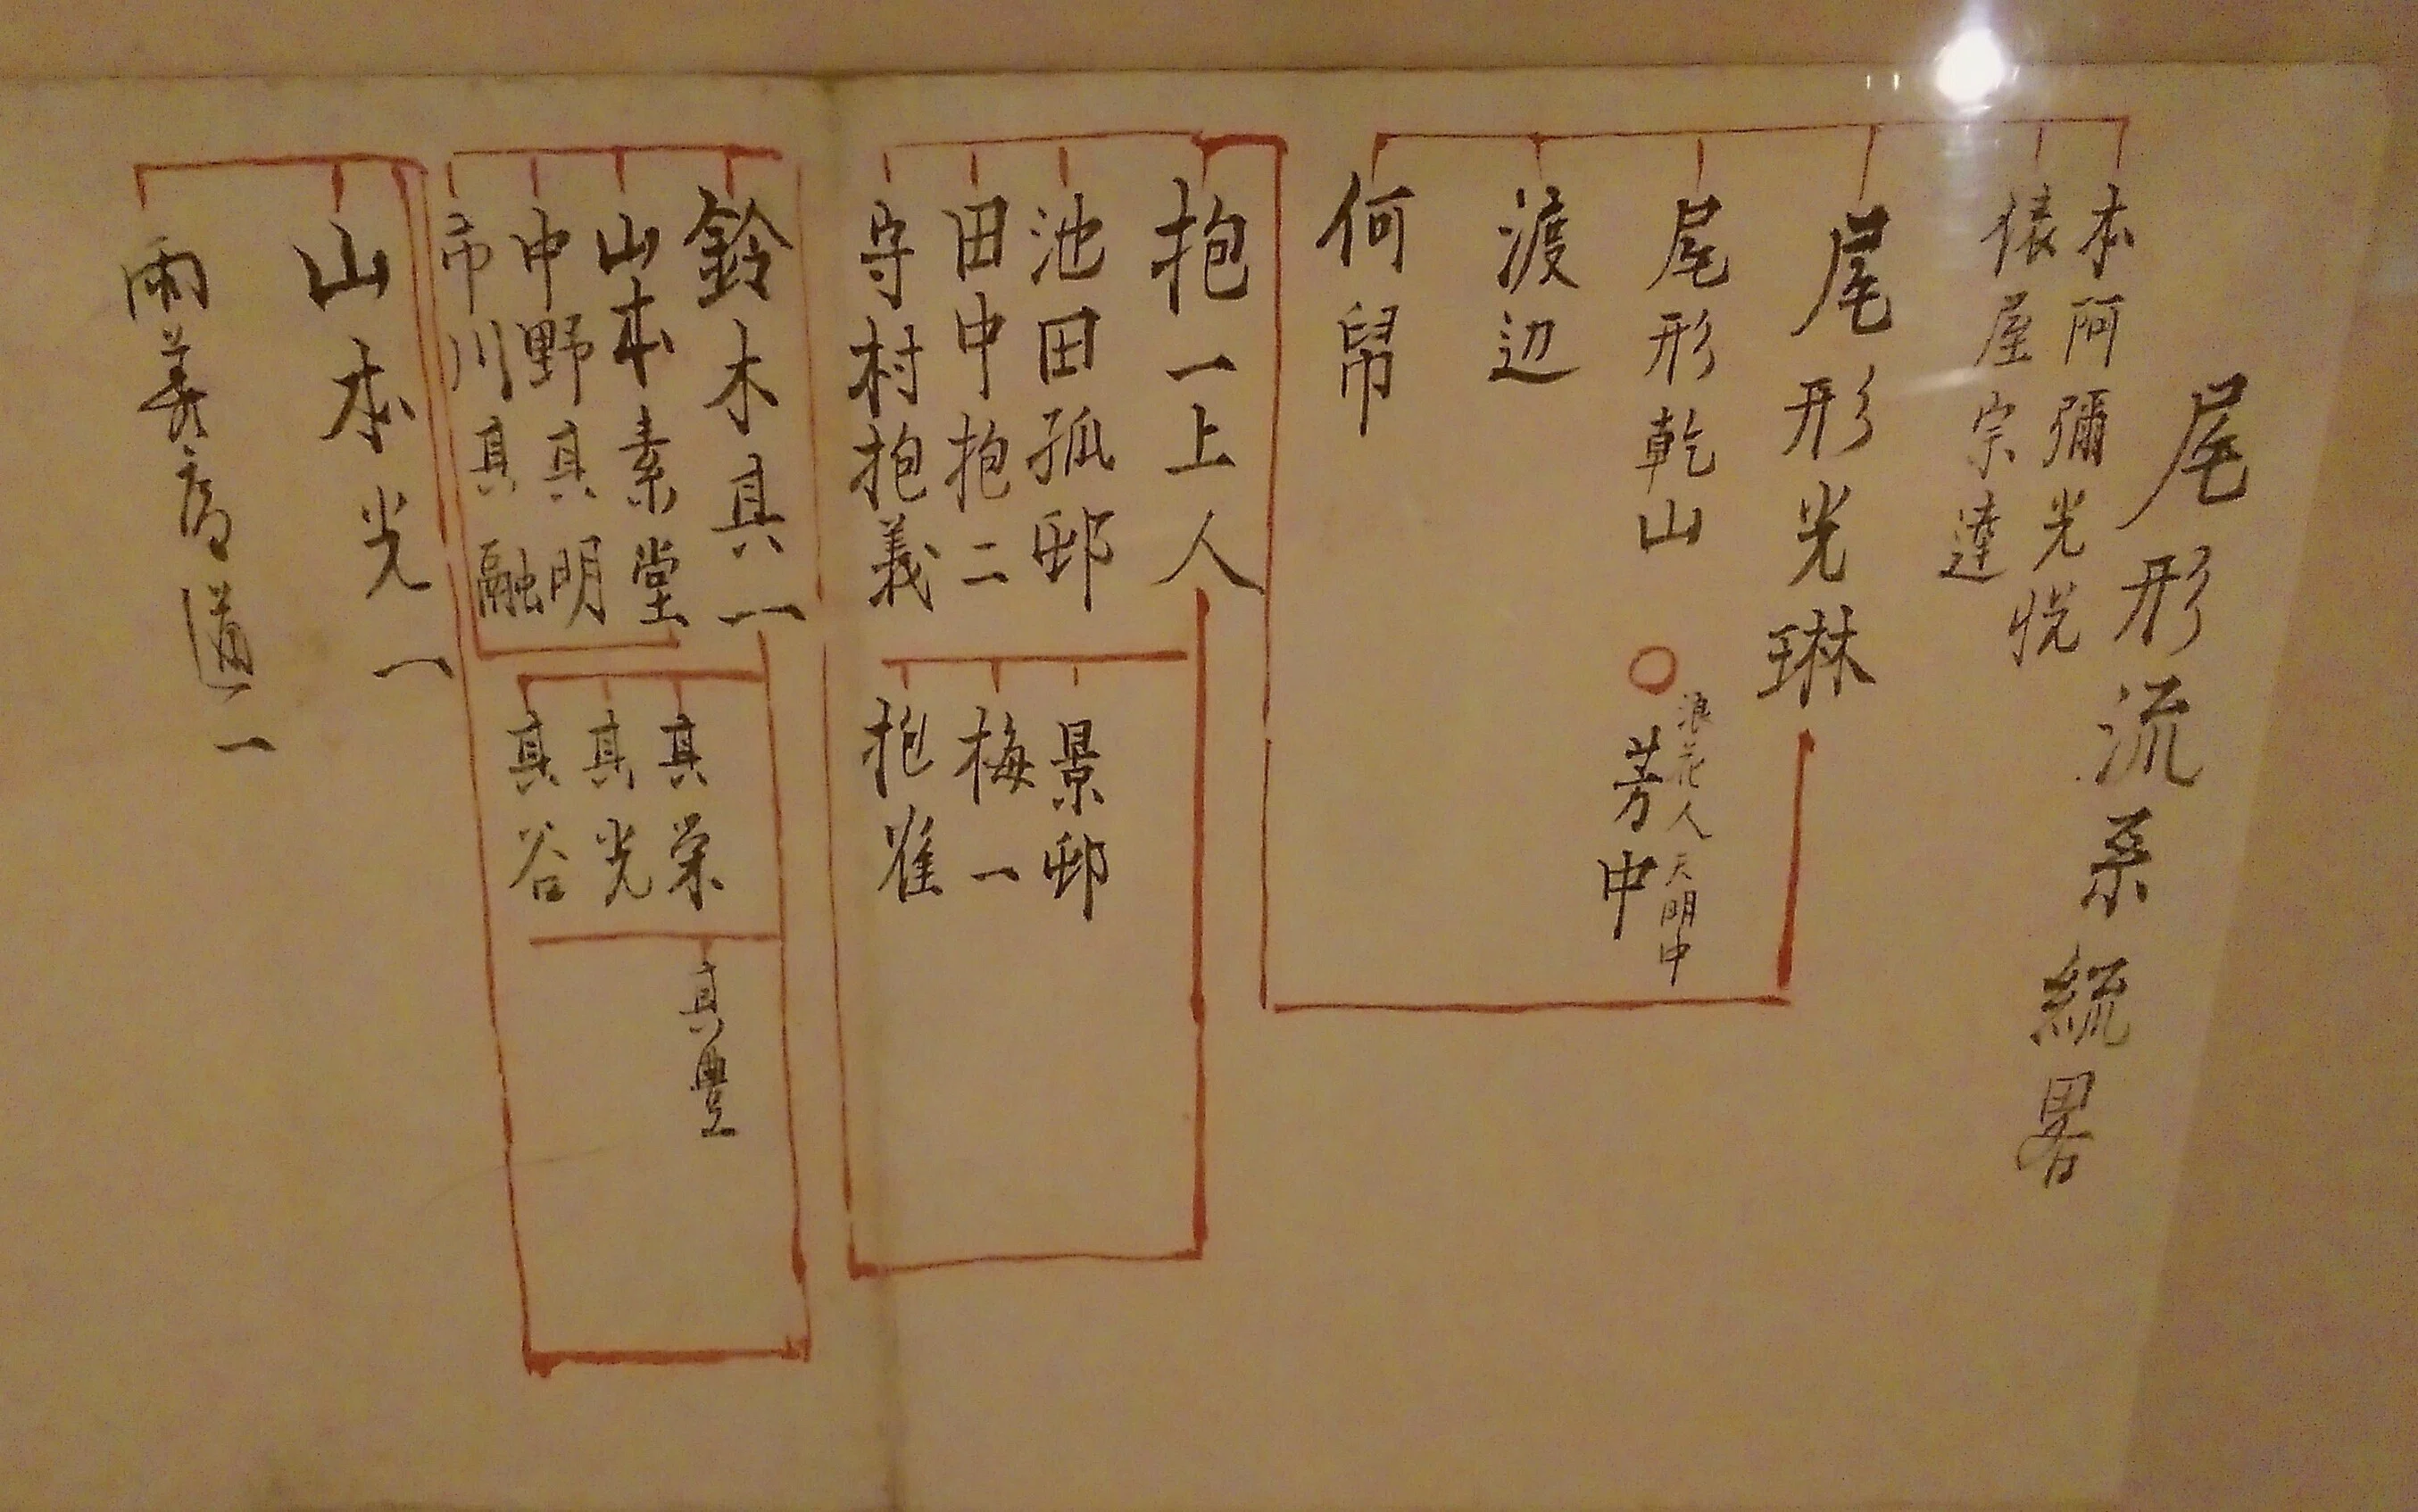 尾形流系統畧
本阿彌光悦
俵屋宗達
尾形光琳
尾形乾山
浪花人天明中
芳中
渡辺
何帠
抱一上人
池田孤邨
田中抱二
守村抱義
景邨
梅一
抱雀
鈴木其一
山本素堂
中野其明
市川其融
其栄
其光
其谷
其豊
山本光一
道一